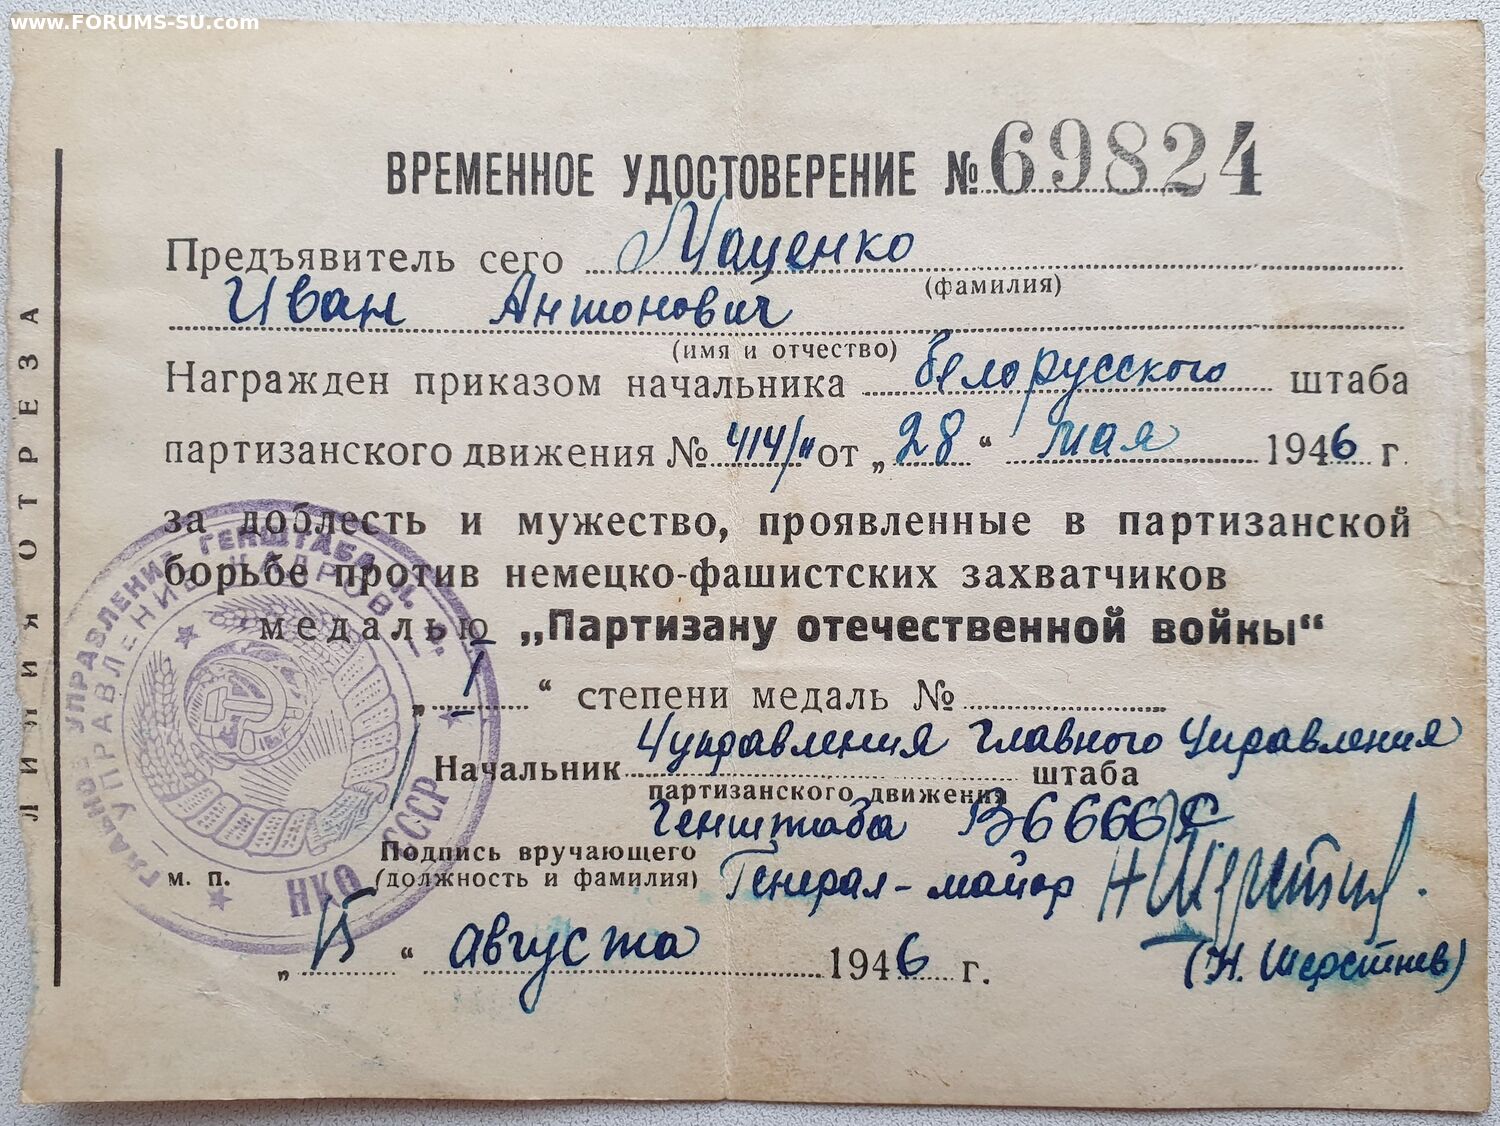 www.FORUMS-SU.com
ВРЕМЕННОЕ УДОСТОВЕРЕНИЕ № 69824
Предъявитель сего Маценко
(фамилия)
Иван Антонович
(имя и отчество)
Награжден приказом начальника Белорусского штаба
партизанского движения № 414/н от „28“ мая 1946 г.
за доблесть и мужество, проявленные в партизанской
борьбе против немецко-фашистских захватчиков
медалью „Партизану отечественной войны“
„I“ степени медаль №
Управления Главного Управления
Начальник штаба
партизанского движения
Генштаба
Подпись вручающего
(должность и фамилия) Генерал-майор
м. п.
(Н. Шерстнев)
„15“ августа 1946 г.
ЛИНИЯ ОТРЕЗА
ГЛАВНОЕ УПРАВЛЕНИЕ ГЕНШТАБА
УПРАВЛЕНИЕ КАДРОВ
НКО СССР